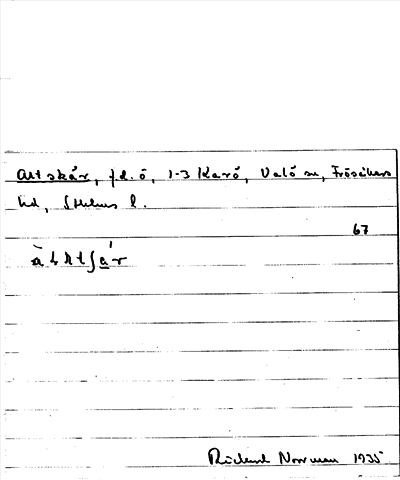 Alt skär, f.d. ö, 1-3 Karö, Valö sn, Frösåkers
hd, Sthlms l.
67
Richard Norrman 1935